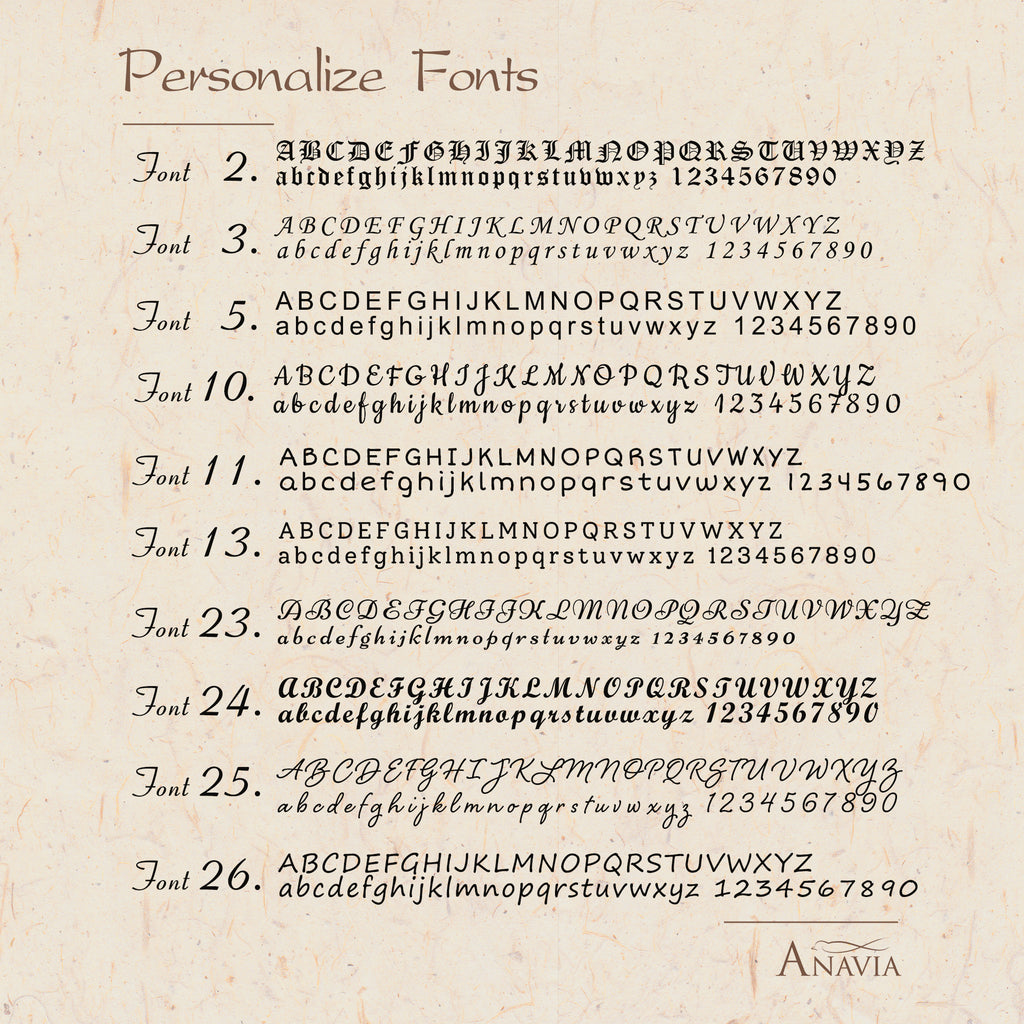 Personalize Fonts
Font 2. ABCDEFGHIJKLMNOPQRSTUVWXYZ
abcdefghijklmnopqrstuvwxyz 1234567890
Font 3. ABCDEFGHIJKLMNOPQRSTUVWXYZ
abcdefghijklmnopqrstuvwxyz 1234567890
Font 5. ABCDEFGHIJKLMNOPQRSTUVWXYZ
abcdefghijklmnopqrstuvwxyz 1234567890
Font 10. ABCDEFGHIJKLMNOPQRSTUVWXYZ
abcdefghijklmnopqrstuvwxyz 1234567890
Font 11. ABCDEFGHIJKLMNOPQRSTUVWXYZ
abcdefghijklmnopqrstuvwxyz 1234567890
Font 13. ABCDEFGHIJKLMNOPQRSTUVWXYZ
abcdefghijklmnopqrstuvwxyz 1234567890
Font 23. ABCDEFGHIJKLMNOPQRSTUVWXYZ
abcdefghijklmnopqrstuvwxyz 1234567890
Font 24. ABCDEFGHIJKLMNOPQRSTUVWXYZ
abcdefghijklmnopqrstuvwxyz 1234567890
Font 25. ABCDEFGHIJKLMNOPQRSTUVWXYZ
abcdefghijklmnopqrstuvwxyz 1234567890
Font 26. ABCDEFGHIJKLMNOPQRSTUVWXYZ
abcdefghijklmnopqrstuvwxyz 1234567890
ANAVIA